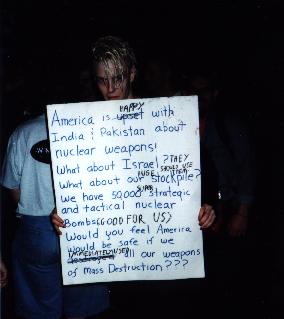 HAPPY
America is upset with
India & Pakistan about
nuclear weapons!
What about Israel? THEY
SHOULD USE
HUGE THEM
What about our stockpile?
SUPER
We have 50,000 strategic
and tactical nuclear
Bombs(GOOD FOR US)
Would you feel America
would be safe if we
IMMEDIATELY USED
all our weapons
of Mass Destruction???